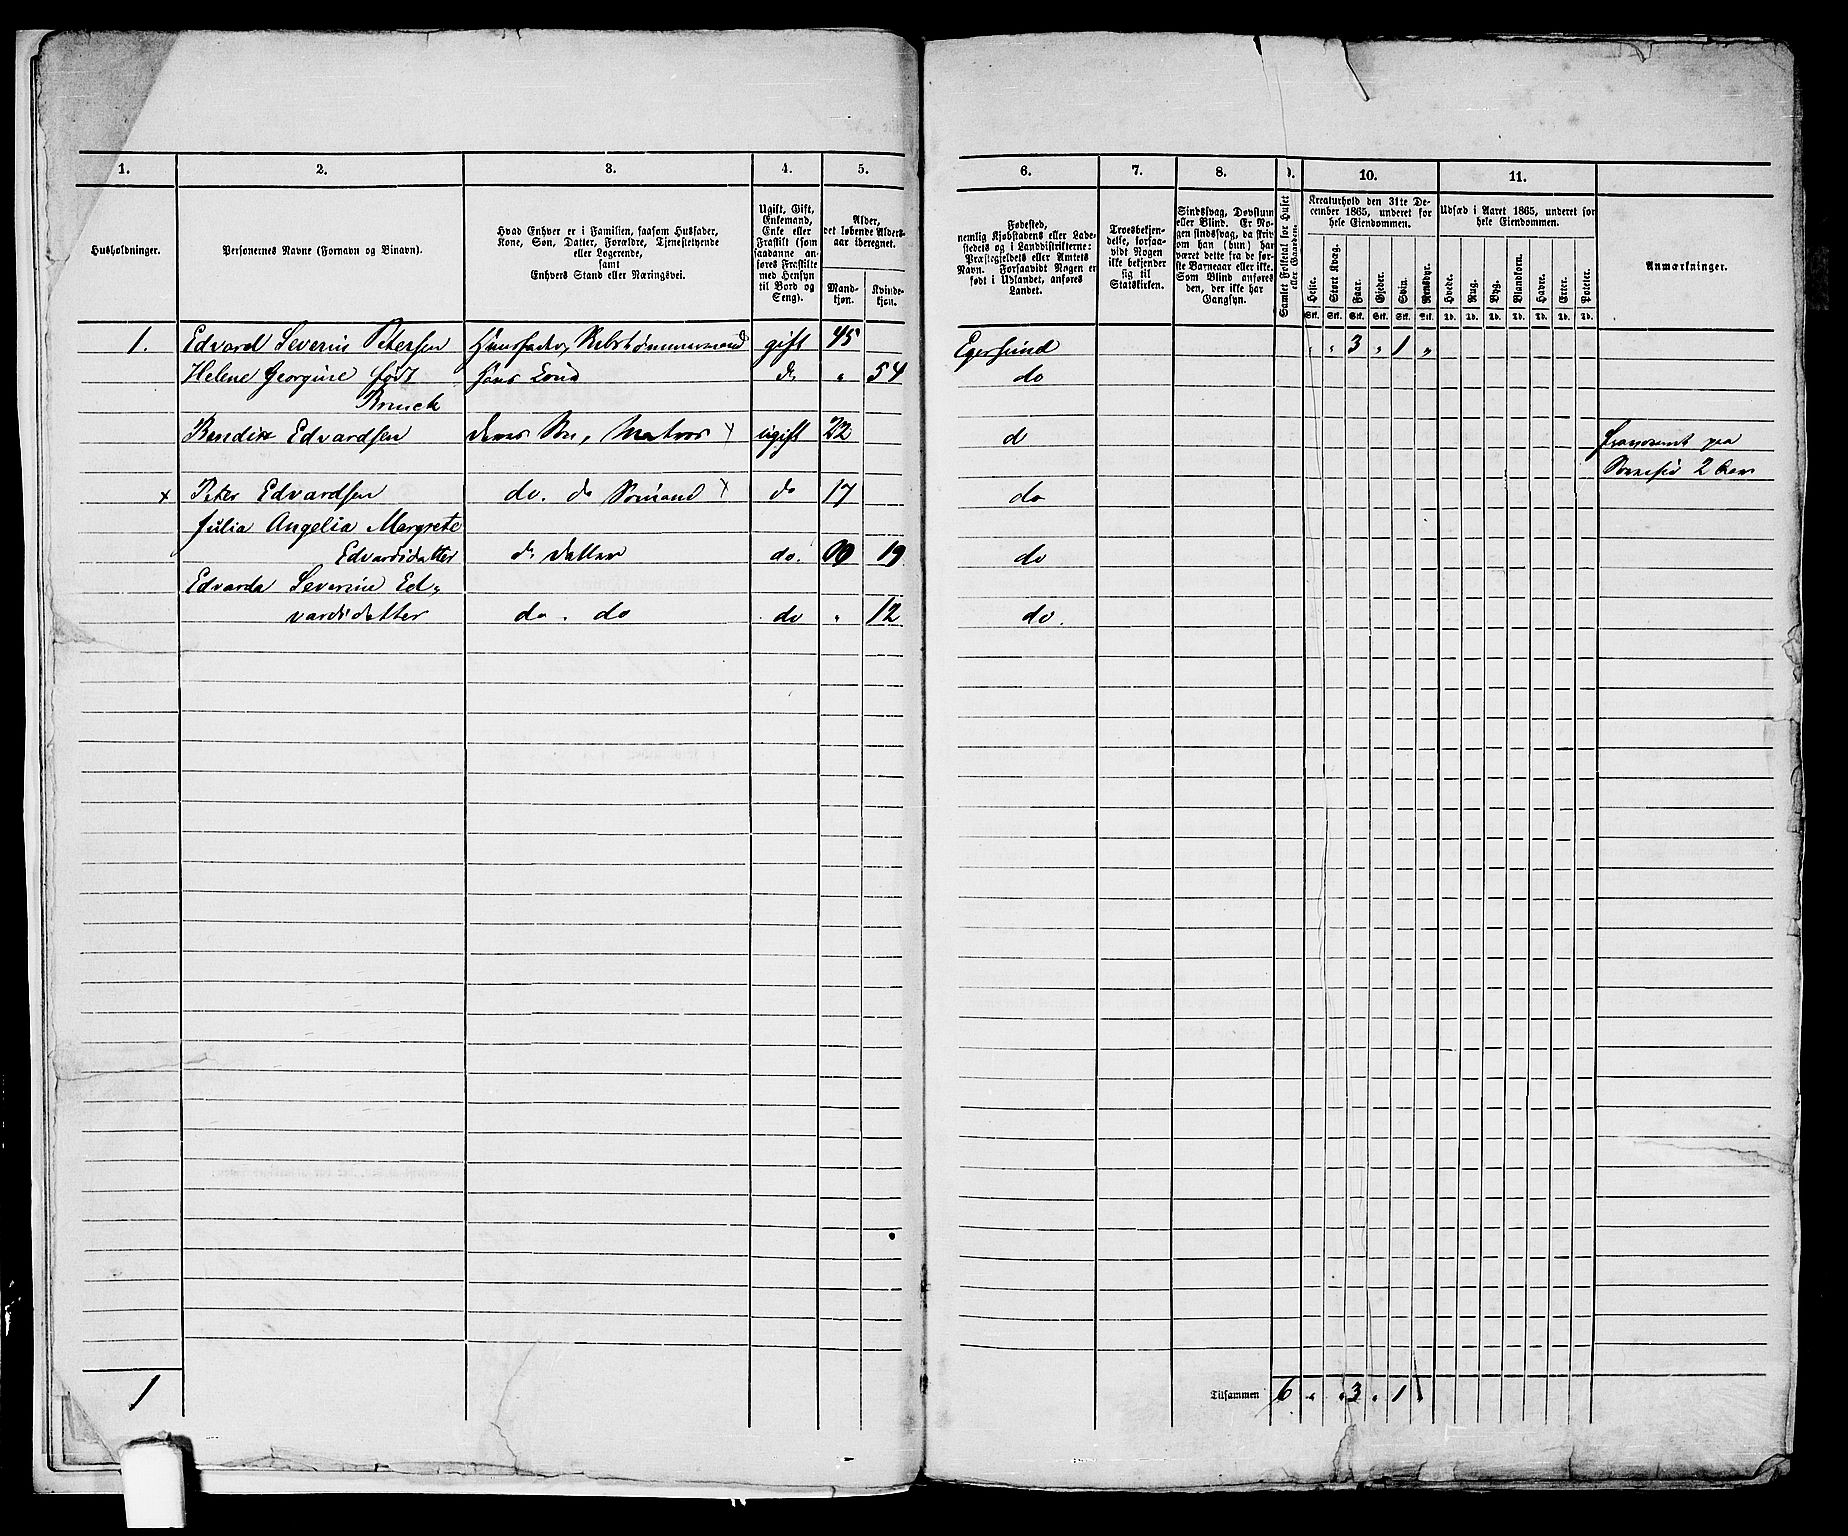 1. 2. 3. 4. 5. 6. 7. 8. 9. 10. 11.
Husholdninger.
Personernes Navne (Fornavn og Binavn).
Hvad Enhver er i Familien, saasom Husfader,
Kone, Søn, Datter, Forældre, Tjenestetyende
eller Logerende,
samt
Enhvers Stand eller Næringsvei.
Ugift, Gift,
Enkemand,
Enke eller
Fraskilt (som
saadanne an-
føres Fraskilte
med Hensyn
til Bord og
Seng).
Alder,
det løbende Alders-
aar iberegnet.
Mand-
kjøn.
Kvinde-
kjøn.
Fødested,
nemlig Kjøbstadens eller Lade-
stedets og i Landdistrikterne:
Præstegjeldets eller Amtets
Navn. Forsaavidt Nogen er
født i Udlandet, anføres
Landet.
Troesbekjen-
delse, forsaa-
vidt Nogen
ikke bekjender
sig til
Statskirken.
Sindssvag, Døvstum
eller Blind. Er No-
gen sindssvag, da skriv
om han (hun) har
været dette fra de før-
ste Barneaar eller ikke.
Som Blind anføres
den, der ikke har
Gangsyn.
Samlet Folketal for Huset
eller Gaarden.
Kreaturhold den 31te De-
cember 1865, underet for
hele Eiendommen.
Heste. Stort Kvæg. Faar. Gjeder. Svin. Rensdyr.
Stk. Stk. Stk. Stk. Stk. Stk.
Udsæd i Aaret 1865, underet for
hele Eiendommen.
Hvede. Rug. Byg. Blandkorn. Havre. Erter. Poteter.
Td. Td. Td. Td. Td. Td. Td.
Anmærkninger.
1. Edvard Severin Petersen Huusfader, gift 45 Egersund " " 3 " 1 "
Helene Georgine født hans Kone do " 54 do
Bruuck
Bendix Edvardsen deres Søn, Matros x ugift 22 d
paa
2 
x Peter Edvardsen do. do Sømand x do 17 do
Julia Angelia Margrete
Edvardsdatter do Datter do. 19 do
Edvarda Severine Ed-
vardsdatter do. do do " 12 do.
1 Tilsammen 6 " " 3 " 1 "